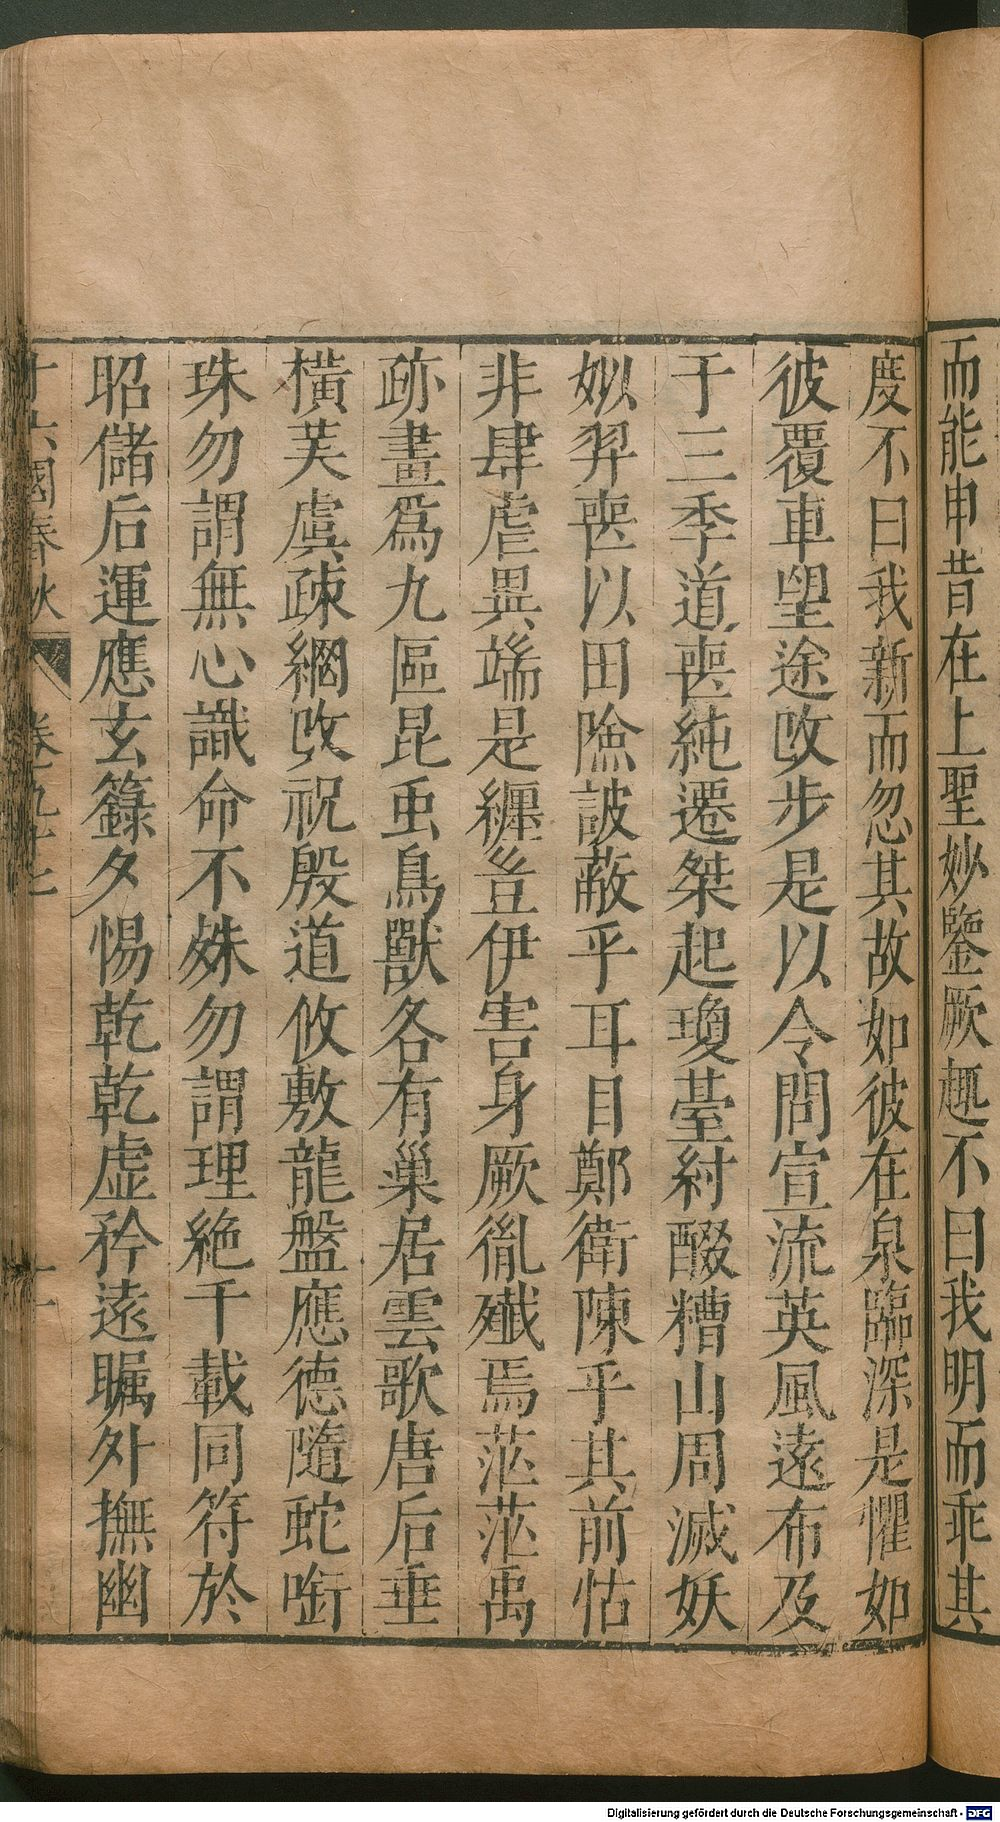 而能申昔在上聖妙鑒厥趣不曰我明而乖其
度不曰我新而忽其故如彼在泉臨深是懼如
彼覆車望途改步是以令問宣流英風遠布及
于三季道喪純遷桀起瓊臺紂醊糟山周滅妖
姒羿喪以田險詖蔽乎耳目鄭衛陳乎其前怙
非肆虐異端是纏豈伊害身厥胤殲焉茫茫禹
跡畫為九區昆虫鳥獸各有巢居雲歌唐后垂
橫芙虞疎網改祝殷道攸敷龍盤應德隨蛇啣
珠勿謂無心識命不殊勿謂理絶千載同符於
昭儲后運應玄籙夕惕乾乾虛矜遠矚外撫幽
十六國春秋 卷之九十七 十一
Digitalisierung gefördert durch die Deutsche Forschungsgemeinschaft - DFG